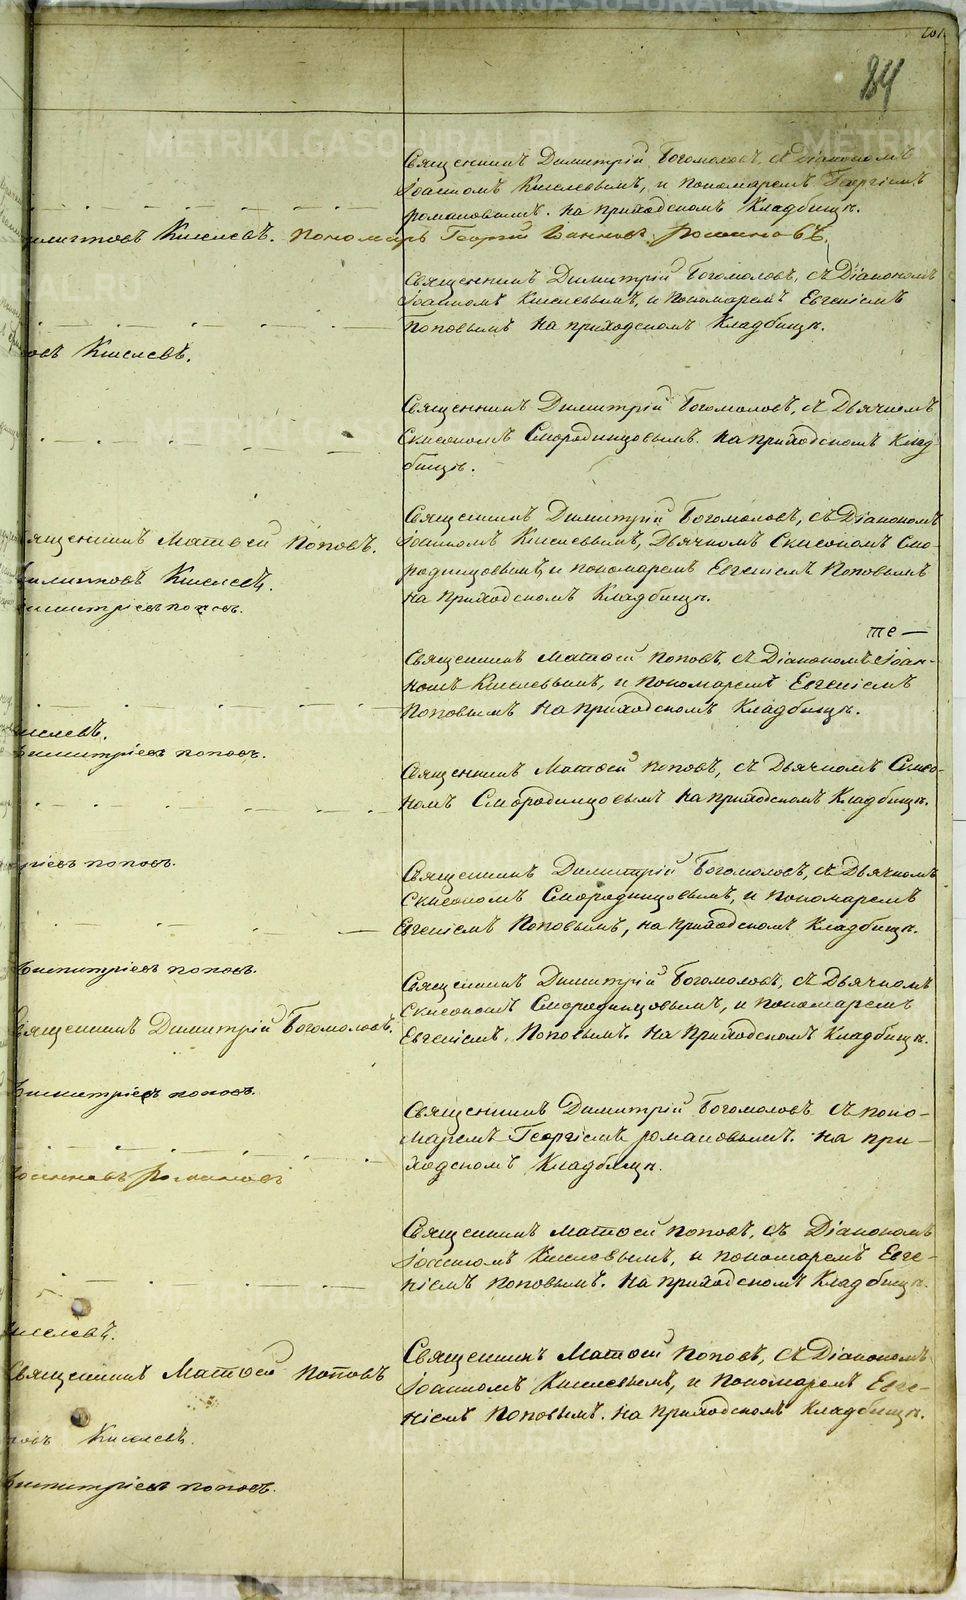 201.
84
Священникъ Димитрій Богомоловъ, съ Діакономъ
Іоанномъ Киселевымъ, и пономаремъ Георгіемъ
Романовымъ. на приходскомъ Кладбищѣ.
Киселевъ. Пономарь Георгій Іоанновъ Романовъ.
Священникъ Димитрій Богомоловъ, съ Діакономъ
Іоанномъ Киселевымъ, и пономаремъ Евгеніемъ
Поповымъ на приходскомъ Кладбищѣ.
Киселевъ.
Священникъ Димитрій Богомоловъ, съ Дьячкомъ
Смородинцовымъ на приходскомъ Клад
бищѣ.
Священникъ Димитрій Богомоловъ, съ Діакономъ
ященникъ Матѳей Поповъ. Іоанномъ Киселевымъ, Дьячкомъ Смо-
Киселевъ. родинцовымъ, и пономаремъ Евгеніемъ Поповымъ
имитріевъ поповъ. на приходскомъ Кладбищѣ.
те
Священникъ Матѳей Поповъ, съ Діакономъ Іоан-
номъ Киселевымъ, и пономаремъ Евгеніемъ
Поповымъ на приходскомъ Кладбищѣ.
иселевъ.
имитріевъ поповъ.
Священникъ Матѳей Поповъ, съ Дьячкомъ
номъ Смородинцовымъ на приходскомъ Кладбищѣ.
ріевъ поповъ.
Священникъ Димитрій Богомоловъ, съ Дьячкомъ
Смородинцовымъ, и пономаремъ
Евгеніемъ Поповымъ, на приходскомъ Кладбищѣ.
имитріевъ поповъ.
Священникъ Димитрій Богомоловъ, съ Дьячкомъ
Смородинцовымъ, и пономаремъ
Священникъ Димитрій Богомоловъ. Евгеніемъ Поповымъ. на приходскомъ Кладбищѣ.
имитріевъ поповъ.
Священникъ Димитрій Богомоловъ съ поно-
маремъ Георгіемъ романовымъ. на при-
ходскомъ Кладбищѣ.
Іоанновъ Романовъ
Священникъ Матѳей поповъ, съ Діакономъ
Іоанномъ Киселевымъ, и пономаремъ Евге-
ніемъ поповымъ. на приходскомъ Кладбищѣ.
иселевъ.
Священникъ Матѳей Поповъ, съ Діакономъ
Священникъ Матѳей Поповъ Іоанномъ Киселевымъ, и Пономаремъ Евге-
ніемъ Поповымъ. на приходскомъ Кладбищѣ.
Киселевъ.
имитріевъ поповъ.
METRIKI.GASO-URAL.RU